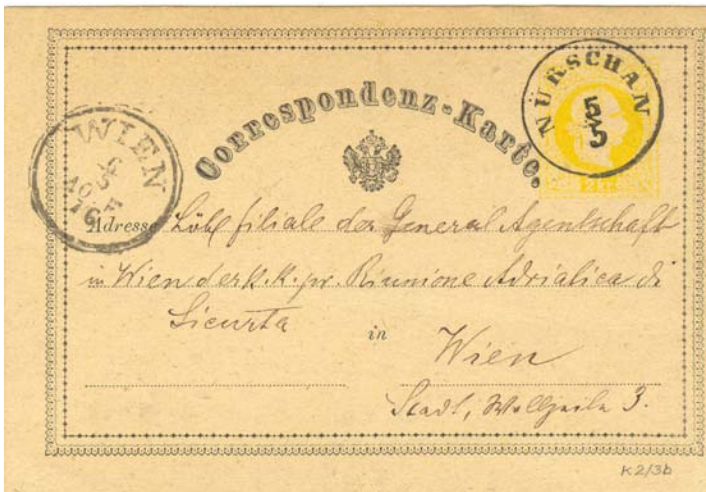 Correspondenz-Karte.
NÜRSCHAN
5/5
2 Kr.
WIEN
Adresse Löbl filiale der General Agentschaft
in Wien der k.k.pr. Riunione Adriatica di
Sicurta
in
Wien
Stadt, Wollzeile 3.
K2/3b